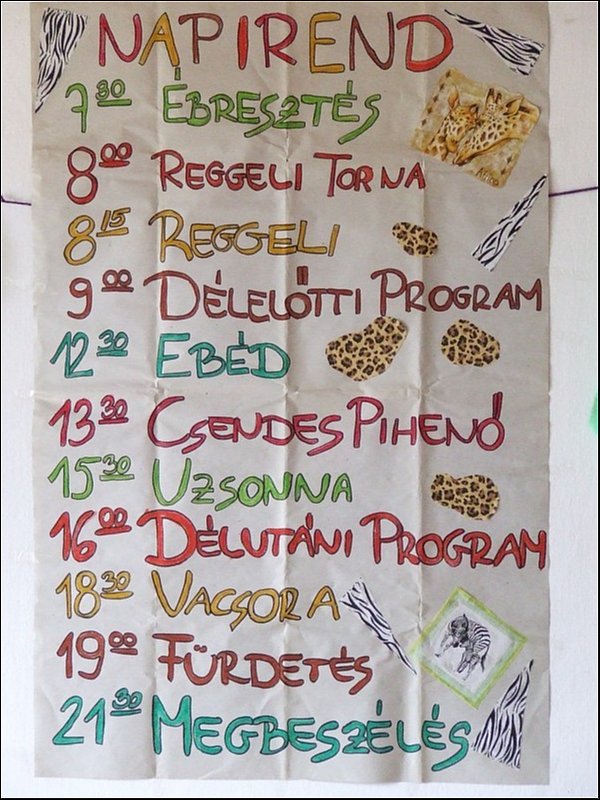 NAPIREND
7³⁰ ÉBRESZTÉS
8⁰⁰ REGGELI TORNA
8¹⁵ REGGELI
9⁰⁰ DÉLELŐTTI PROGRAM
12³⁰ EBÉD
13³⁰ CSENDES PIHENŐ
15³⁰ UZSONNA
16⁰⁰ DÉLUTÁNI PROGRAM
18³⁰ VACSORA
19⁰⁰ FÜRDETÉS
21³⁰ MEGBESZÉLÉS